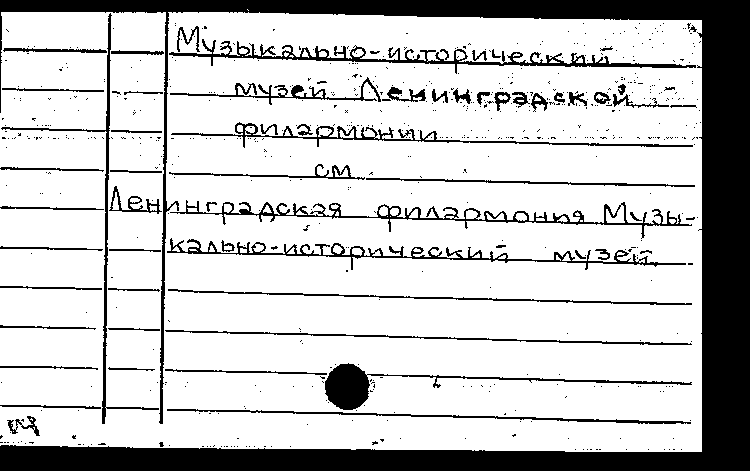 Музыкально-исторический
музей Ленинградской
филармонии
см
Ленинградская филармония Музы-
кально-исторический музей